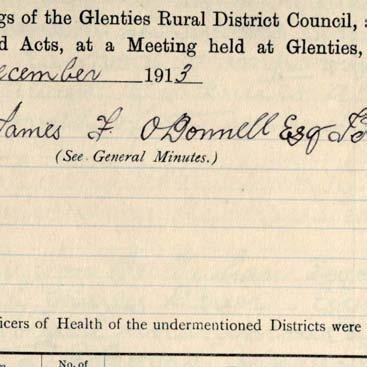 gs of the Glenties Rural District Council,
d Acts, at a Meeting held at Glenties,
ecember 1913
James F. O'Donnell Esq
(See General Minutes.)
icers of Health of the undermentioned Districts were
No. of